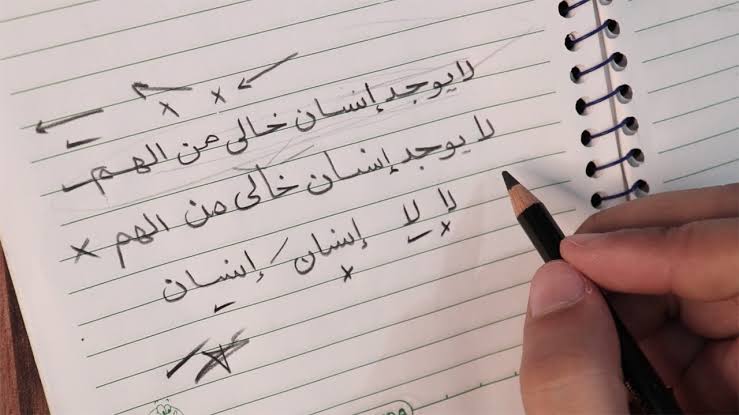 لا يوجد إنسان خالى من الهم
لا يوجد إنسان خالى من الهم
لا لا إنسان / إنسان